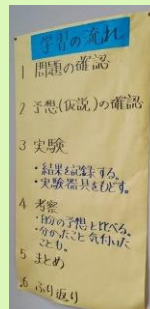 学習の流れ
1 問題の確認
2 予想(仮説)の確認
3 実験
・結果を記録する。
・実験器具をもどす。
4 考察
・自分の予想と比べる。
・分かったこと、気付いた
ことも。
5 まとめ
6 ふり返り